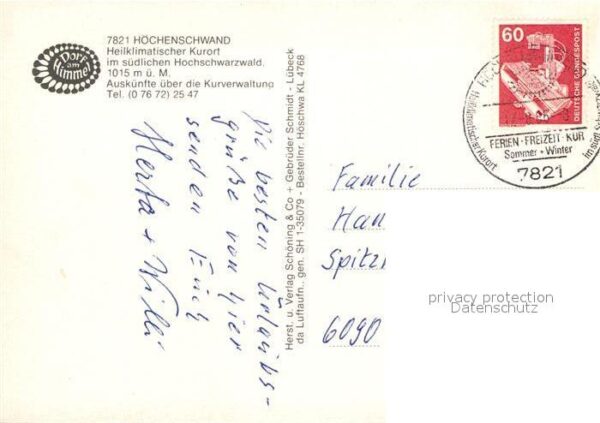 7821 HÖCHENSCHWAND
Heilklimatischer Kurort
im südlichen Hochschwarzwald.
1015 m ü. M.
Auskünfte über die Kurverwaltung
Tel. (0 76 72) 25 47
Dorf
am
Himmel
Die besten Urlaubs-
grüße von hier
senden Euch
Herta + Willi
Herst. u. Verlag Schöning & Co + Gebrüder Schmidt - Lübeck
da Luftaufn., gen. SH 1-35079 - Bestellnr. Höschwa KL 4768
60
DEUTSCHE BUNDESPOST
Heilklimatischer Kurort
FERIEN · FREIZEIT · KUR
Sommer + Winter
7821
Familie
Han
Spitz
6090
privacy protection
Datenschutz